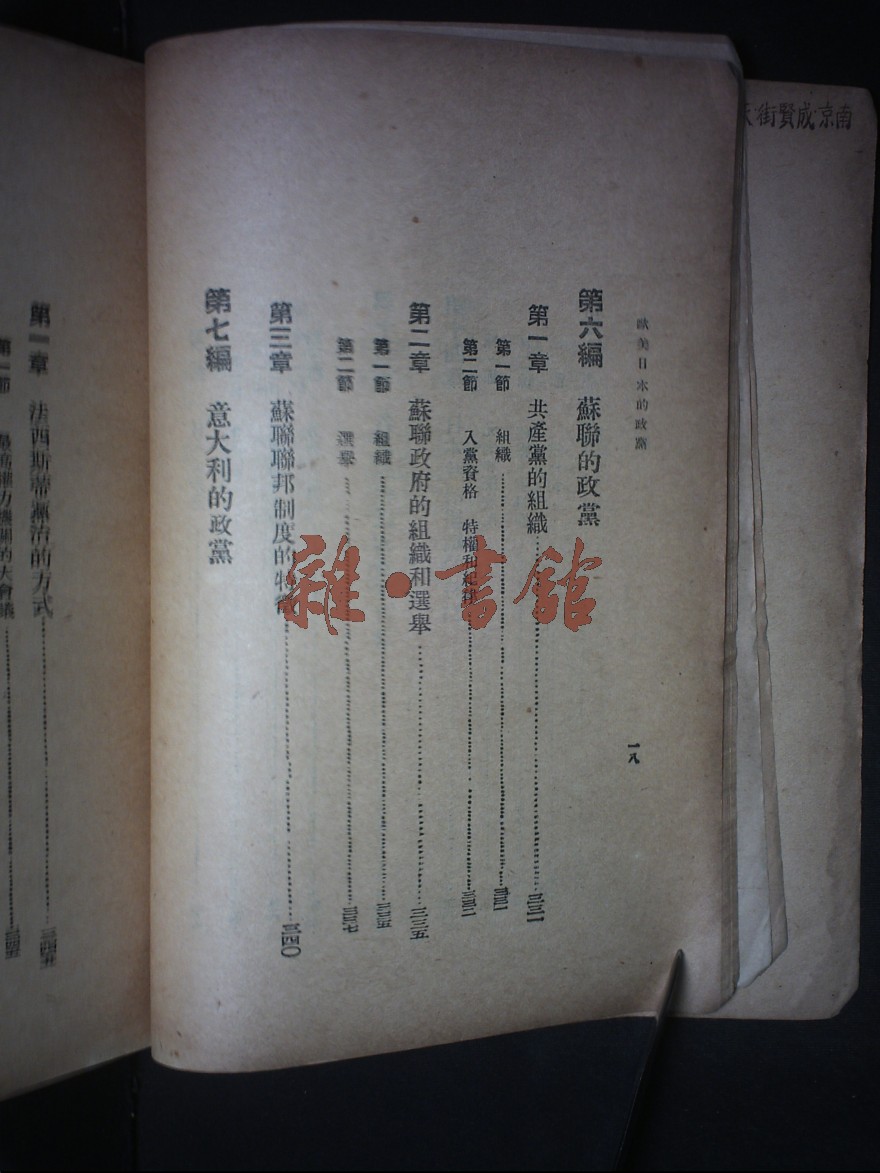 南京·成賢街
歐美日本的政黨
一八
第六編　蘇聯的政黨
第一章　共產黨的組織……三三一
第一節　組織……三三一
第二節　入黨資格　特權和紀律……三三二
第二章　蘇聯政府的組織和選舉……三三五
第一節　組織……三三五
第二節　選舉……三三七
第三章　蘇聯聯邦制度的特徵……三四〇
第七編　意大利的政黨
第一章　法西斯蒂治的方式……三四五
第一節　最高權力機關的大會議……三四五
雜·書館